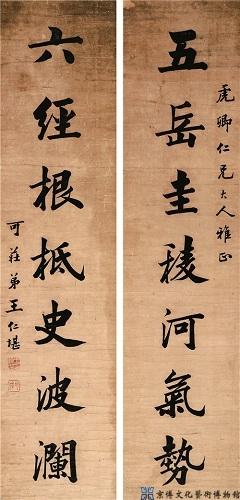 五岳圭棱河氣勢
虎卿仁兄大人雅正
六經根柢史波瀾
可莊弟王仁堪
京博文化藝術博物館